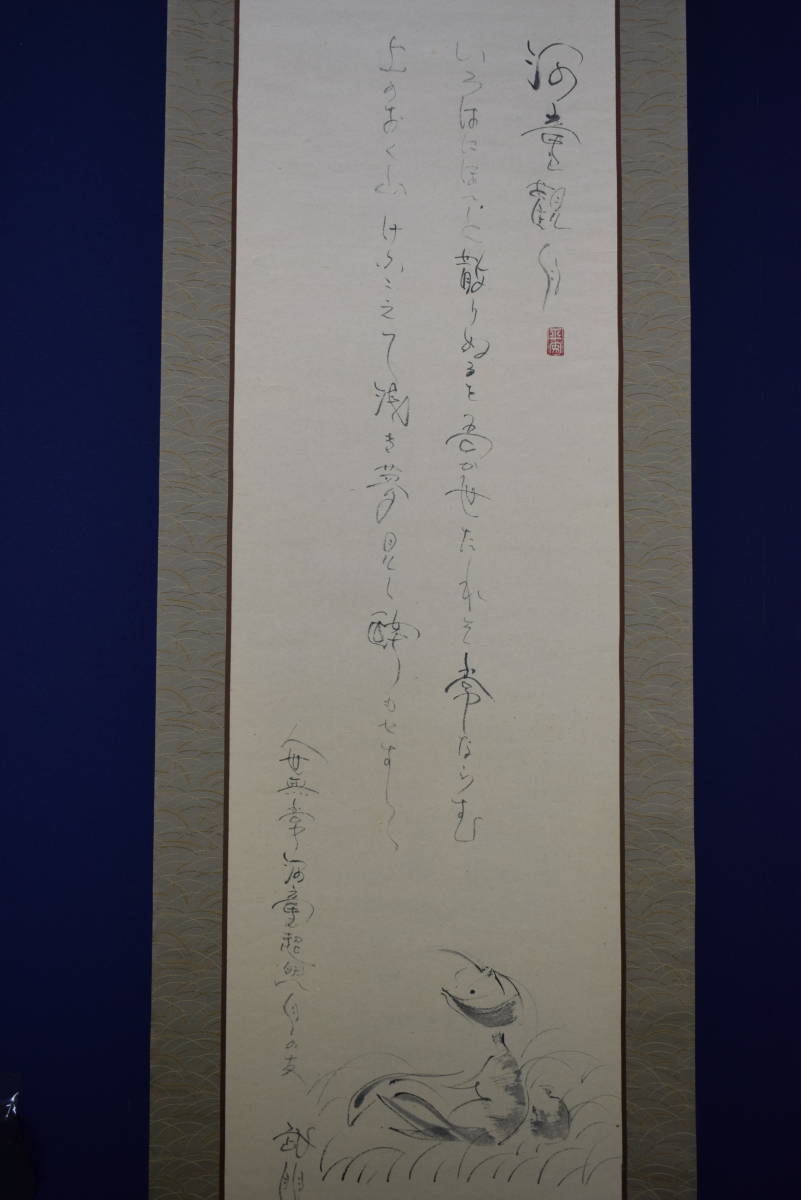 河童観月
いろはにほへと散りぬるを吾が世たれそ常ならむ
のおく山けふこえて浅き夢見し酔ひもせす
人世無常河童超然月の友